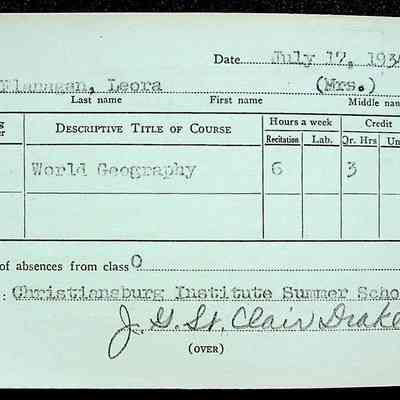 Date July 17, 193
Flanagan, Leora (Mrs.)
Last name First name Middle nam
Descriptive Title of Course Hours a week Credit
Recitation Lab. Qr. Hrs Un
World Geography 6 3
of absences from class 0
: Christiansburg Institute Summer Scho
J. G. St. Clair Drake
(OVER)